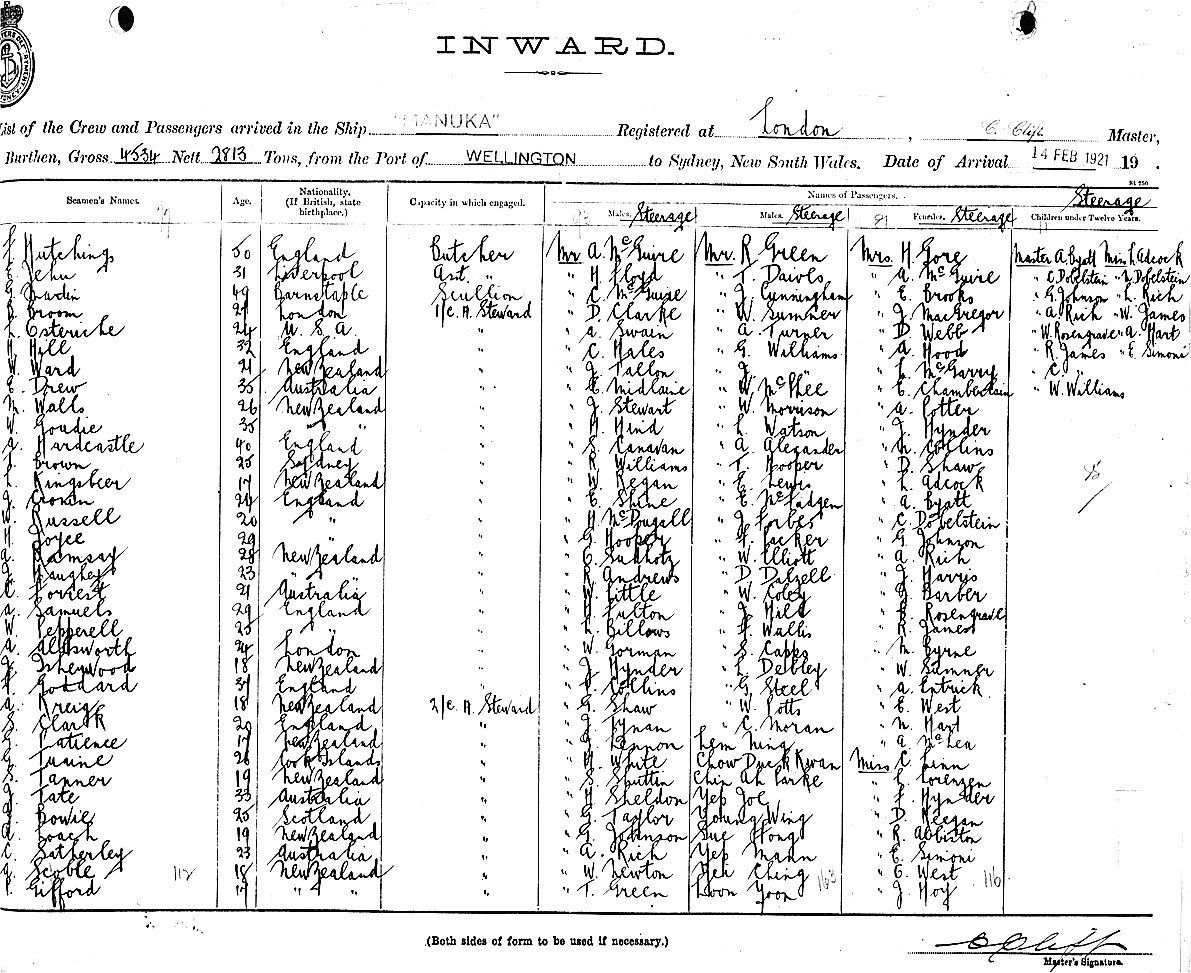 INWARD.
List of the Crew and Passengers arrived in the Ship "MANUKA" Registered at London, C. Cliff Master,
Burthen, Gross 4534 Nett 2813 Tons, from the Port of WELLINGTON to Sydney, New South Wales. Date of Arrival 14 FEB 1921 19 .
Names of Passengers.
Seamen's Names. Age. Nationality, (If British, state birthplace.) Capacity in which engaged. Males. Steerage Males. Steerage Females. Steerage Steerage Children under Twelve Years.
Hutchings 50 England Butcher Mr. A. McGuire Mr. R Green Mrs. H. Gore Master A. Byatt Miss L Adcock
Jehu 31 Liverpool Asst. " " H Floyd " T. Davols " A. McGuire " C. Dobelstein " Dobelstein
49 Barnstaple Scullion " C. McGuire " J. Cunningham " E. Brooks " G. Johnson " L. Rich
Broom 27 London 1/c. A. Steward " D. Clarke " W. Sumner " J. MacGregor " A Rich " W. James
L. Esteriche 24 U. S. A " " A. Swain " A. Turner " D. Webb " W. Rosengrave " A. Hart
H. Hill 32 England " " C. Hales " G. Williams " A. Hood " R. James " E. Simoni
W. Ward 21 New Zealand " " J. Fallon " J. " " L. McGarry " C. "
E. Drew 35 Australia " " E. Midlane " W. McPhee " E. Chamberlain " W. Williams
M. Walls 26 New Zealand " " J. Stewart " W. Morrison " A. Potter
W. Goudie 35 " " " H. Hind " L. Watson " J. Hynder
J. Hardcastle 40 England " " S. Canavan " A. Alexander " M. Collins
J. Brown 25 Sydney " " R. Williams " T. Hooper " D. Shaw
L. Kingsbeer 17 New Zealand " " W. Regan " E. Lewis " L. Adcock
J. Cronin 24 England " " E. Shine " E. McFadgen " A. Byatt
W. Russell 20 " " " H. McDougall " J. Forbes " C. Dobelstein
H. Joyce 29 " " G. Hooper " Packer " G. Johnson
A. Ramsay 28 New Zealand " " C. " W. Elliott " A. Rich
J. Haughey 23 " " " R. Andrews " D. Dalzell " J. Harrys
C. Forrest 21 Australia " " W. Little " W. Coley " J. Barber
A. Samuels 29 England " " H. Fulton " J. Hild " Rosengrave
W. Pepperell 25 " " L. Billows " Wallis " R. James
A. Aldsworth 24 London " " W. Gorman " S. Capps " M. Byrne
J. Isherwood 18 New Zealand " " J. Hynder " L. Debley " W. Sumner
Goddard 37 England " " P. Collins " G. Steel " A. Entrick
A. Kreig 18 New Zealand 2/c. A. Steward " G. Shaw " W. Potts " E. West
S. Clark 20 England " " J. Fynan " C. Moran " N. Hart
Patience 17 New Zealand " " J. Lennon Lem Ning " A. McLea
Tuaine 26 Cook Islands " " H. White Chow Duck Kwan Miss C. Linn
S. Tanner 19 New Zealand " " S. Chin Ah Parke " L. Lorenzen
J. Tate 33 Australia " " H. Sheldon Yep Joe " F. Hynder
J. Bowie 25 Scotland " " G. Taylor Young Wing " D. Keegan
A. Loach 19 New Zealand " " G. Johnson Sue Hong " R. Abbiston
C. Satherley 23 Australia " " A. Rich Yep Mann " E. Simoni
Scoble 112 18 New Zealand " " W. Newton Yeh Ching 163 " E. West 116
P. Gifford 17 " " " " T. Green Loon Yoon " J. Hoy
(Both sides of form to be used if necessary.)
C Cliff
Master's Signature.